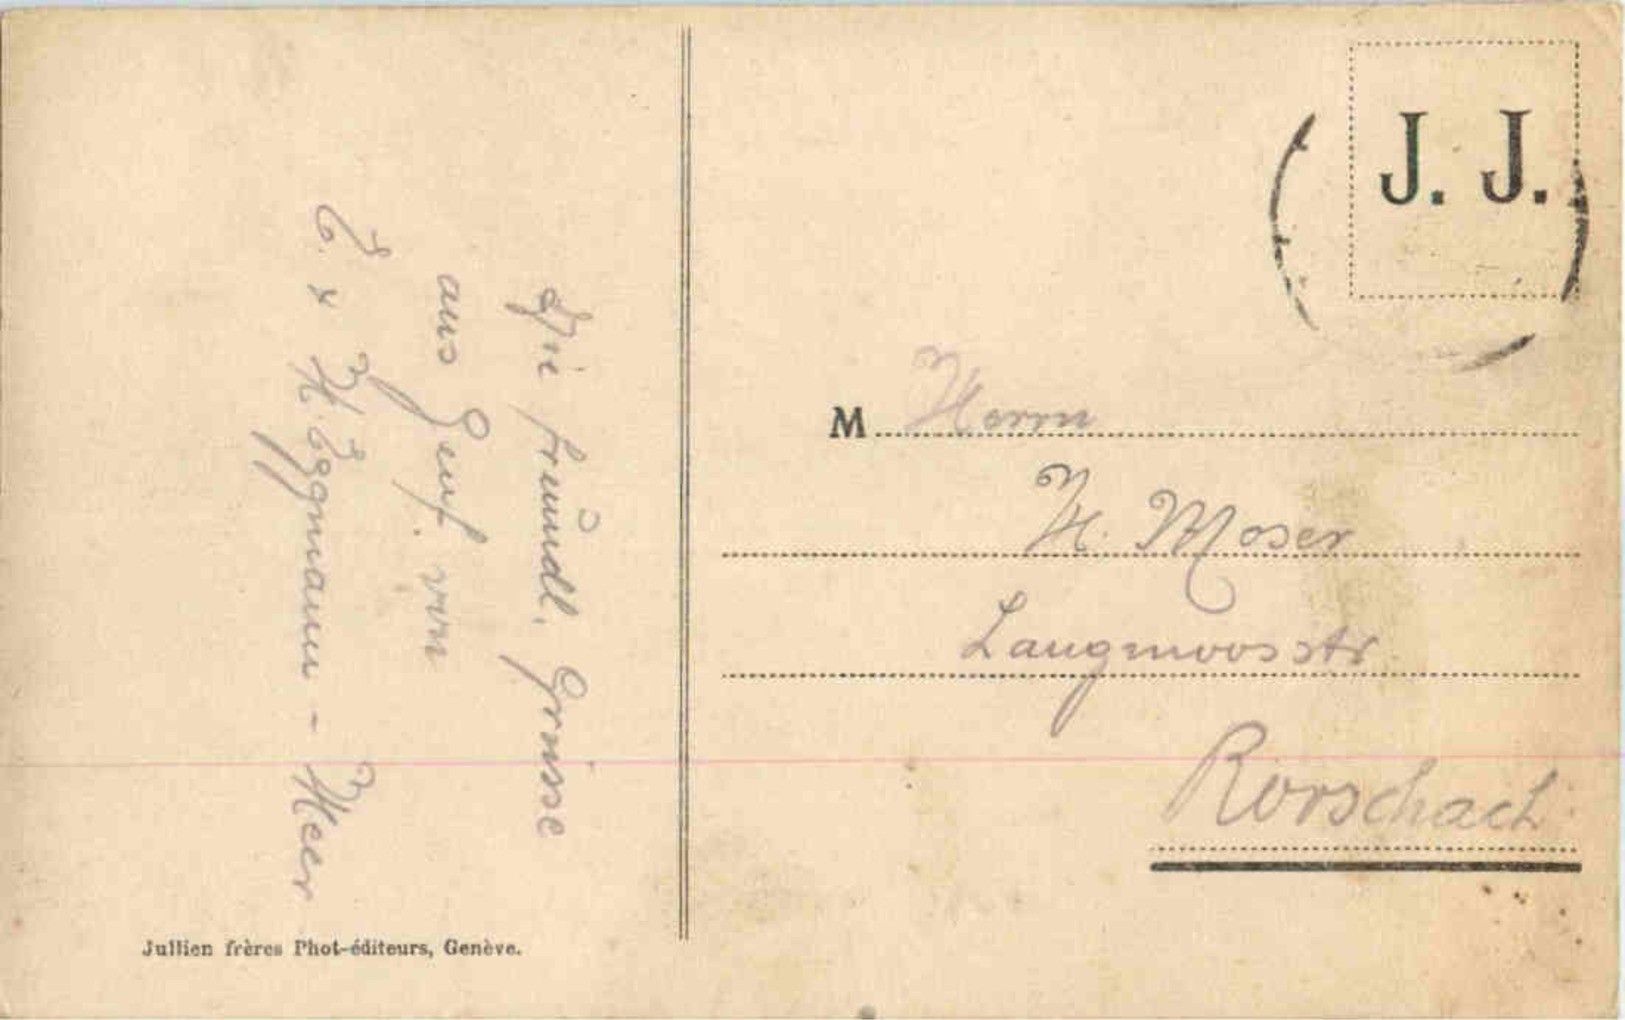 Die freundl. Grüsse
aus Genf von
E. & H. Eggmann - Heer
Jullien frères Phot-éditeurs, Genève.
J. J.
M Herrn
H. Moser
Langmoosstr
Rorschach